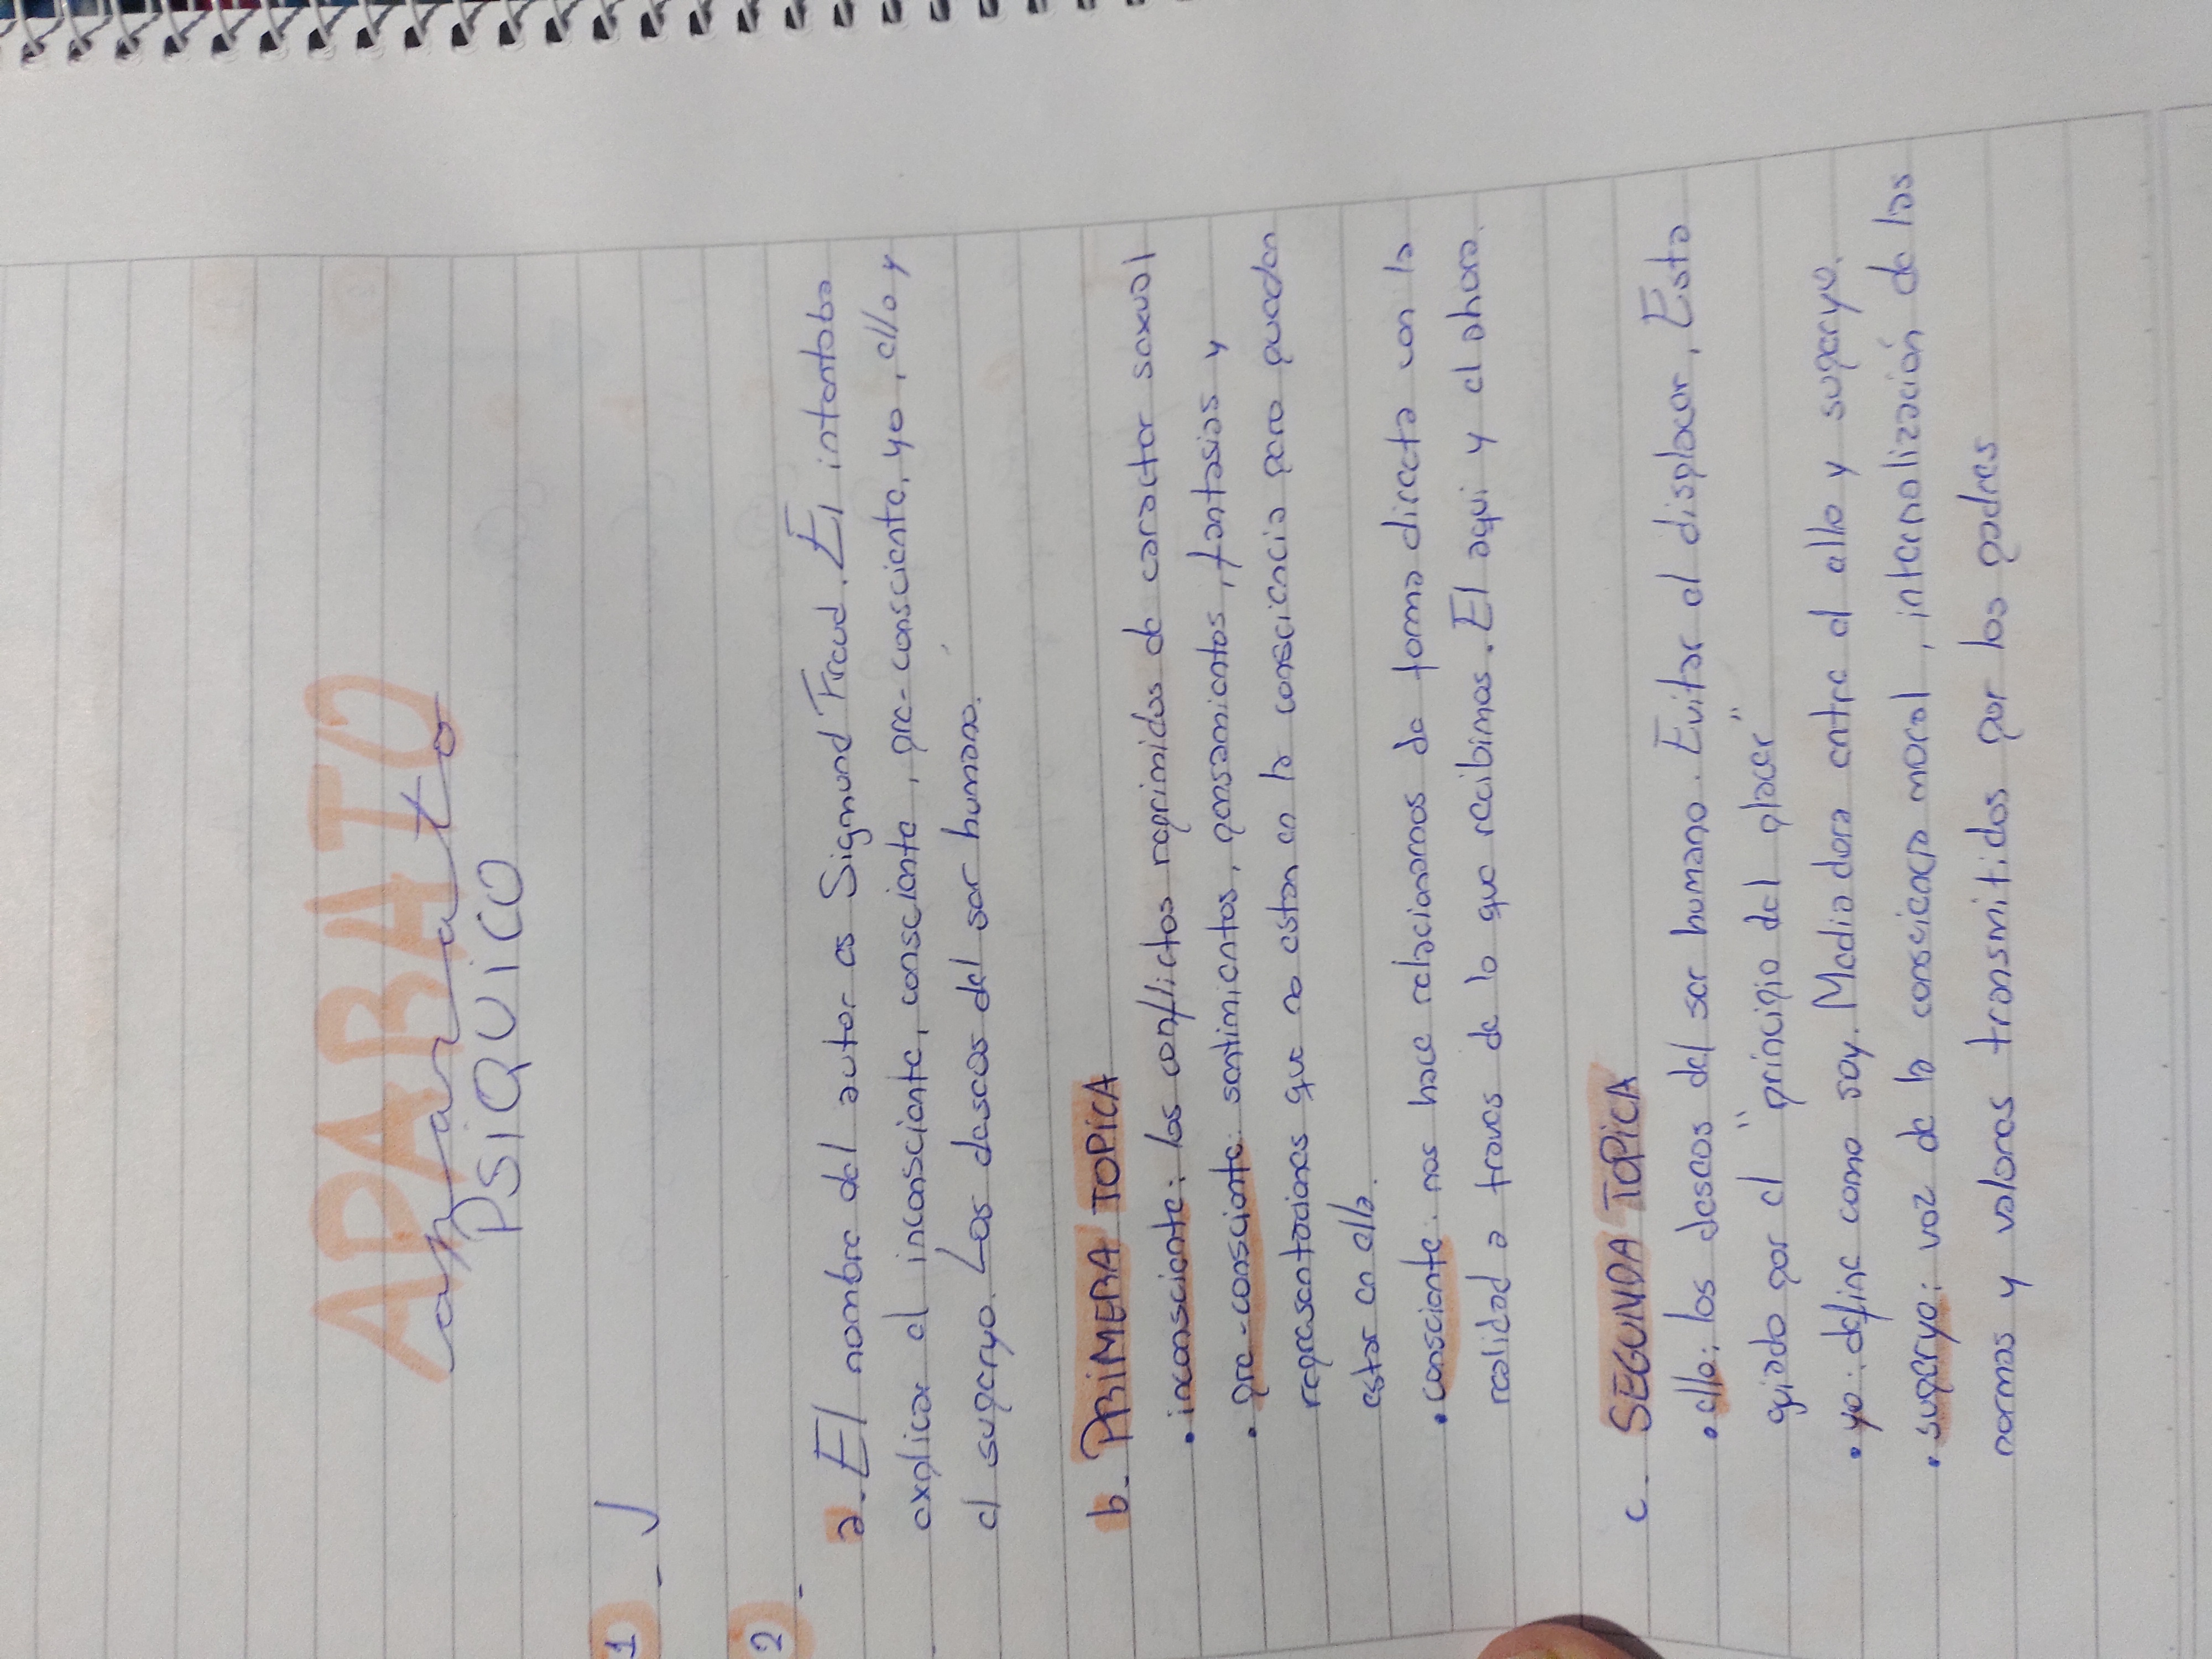 APARATO
aparato
PSIQUICO
1 - ✓
2 -
a. El nombre del autor es Sigmund Freud. Él intentaba
explicar el inconsciente, consciente, pre-consciente, yo, ello y
el superyo. Los deseos del ser humano.
b. PRIMERA TOPICA
• inconsciente: los conflictos reprimidos de caracter sexual
• pre-consciente: sentimientos, pensamientos, fantasias y
representaciones que no estan en la consciencia pero pueden
estar en ella.
• consciente: nos hace relacionarnos de forma directa con la
realidad a traves de lo que recibimos. El aqui y el ahora.
c. SEGUNDA TOPICA
• ello: los deseos del ser humano. Evitar el displacer, Esta
guiado por el "principio del placer"
• yo: define como soy. Mediadora entre el ello y superyo.
• superyo: voz de la consciencia moral, internalización de las
normas y valores transmitidos por los padres